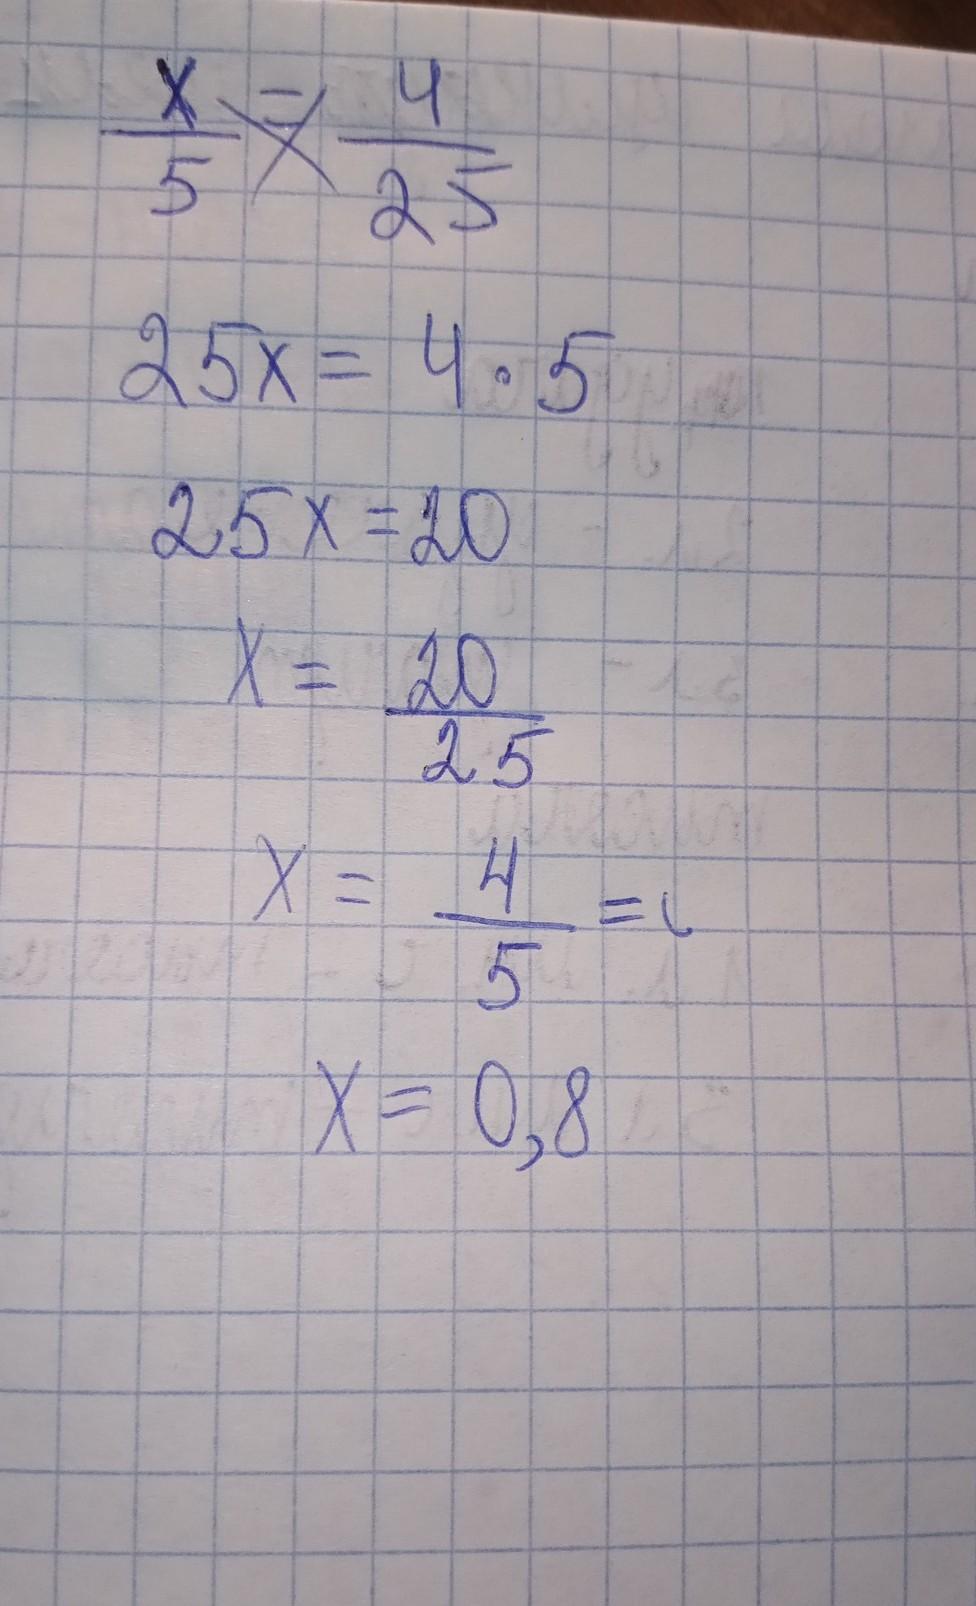 x/5 = 4/25
25x = 4·5
25x = 20
x = 20/25
x = 4/5 =
x = 0,8